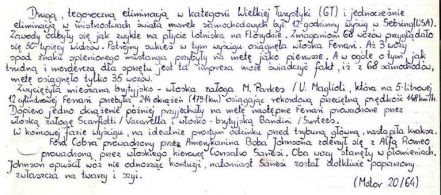 Drugą, tegoroczną eliminacją w kategorii Wielkiej Turystyki (GT) i jednocześnie
eliminacją w mistrzostwach świata marek samochodowych był 12 godzinny wyścig w Sebring (USA).
Zawody odbyły się jak zwykle na płycie lotniska na Florydzie. Zmaganiom 68 wozów przyglądało
się 50 tysięcy widzów. Potrójny sukces w tym wyścigu osiągnęła włoska Ferrari. Aż 3 wozy
spod znaku spienionego mustanga przybyły na metę jako pierwsze. A w ogóle o tym, jak
trudną i morderczą dla sprzętu jest ta impreza może świadczyć fakt, iż z 68 samochodów,
metę osiągnęło tylko 35 wozów.
Zwyciężyła mieszana brytyjsko - włoska załoga M. Parkes / U. Maglioli, która na 5-litrowej
12 cylindrowej Ferrari przebyła 214 okrążeń (1791 km) osiągając rekordową przeciętną prędkość 148 km/h.
Dopiero jedno okrążenie później przybyły na metę następne Ferrari prowadzone przez
włoską załogę Scarfiotti / Vaccarella i włosko - brytyjską Bandini / Surtees.
W końcowej fazie wyścigu, na idealnie prostym odcinku przed trybuną główną, nastąpiła kraksa.
Ford Cobra prowadzony przez Amerykanina Boba Johnsona zderzył się z Alfą Romeo
prowadzoną przez włoskiego kierowcę Consalvo Sanesi. Oba wozy stanęły w płomieniach,
Johnson opuścił wóz nie odnosząc kontuzji, natomiast Sanesi został dotkliwie poparzony
zwłaszcza na twarzy i szyi.
(Motor 20/64)